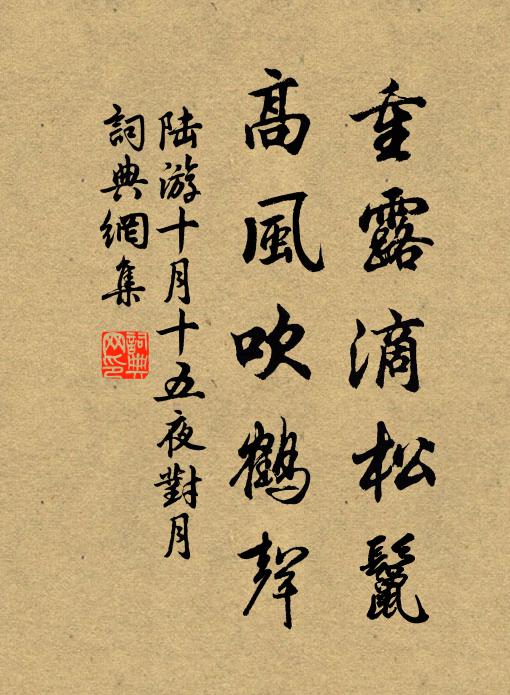 重露滴松鬣
高風吹鶴聲
陸游十月十五夜對月
詞典網集
詞典网印